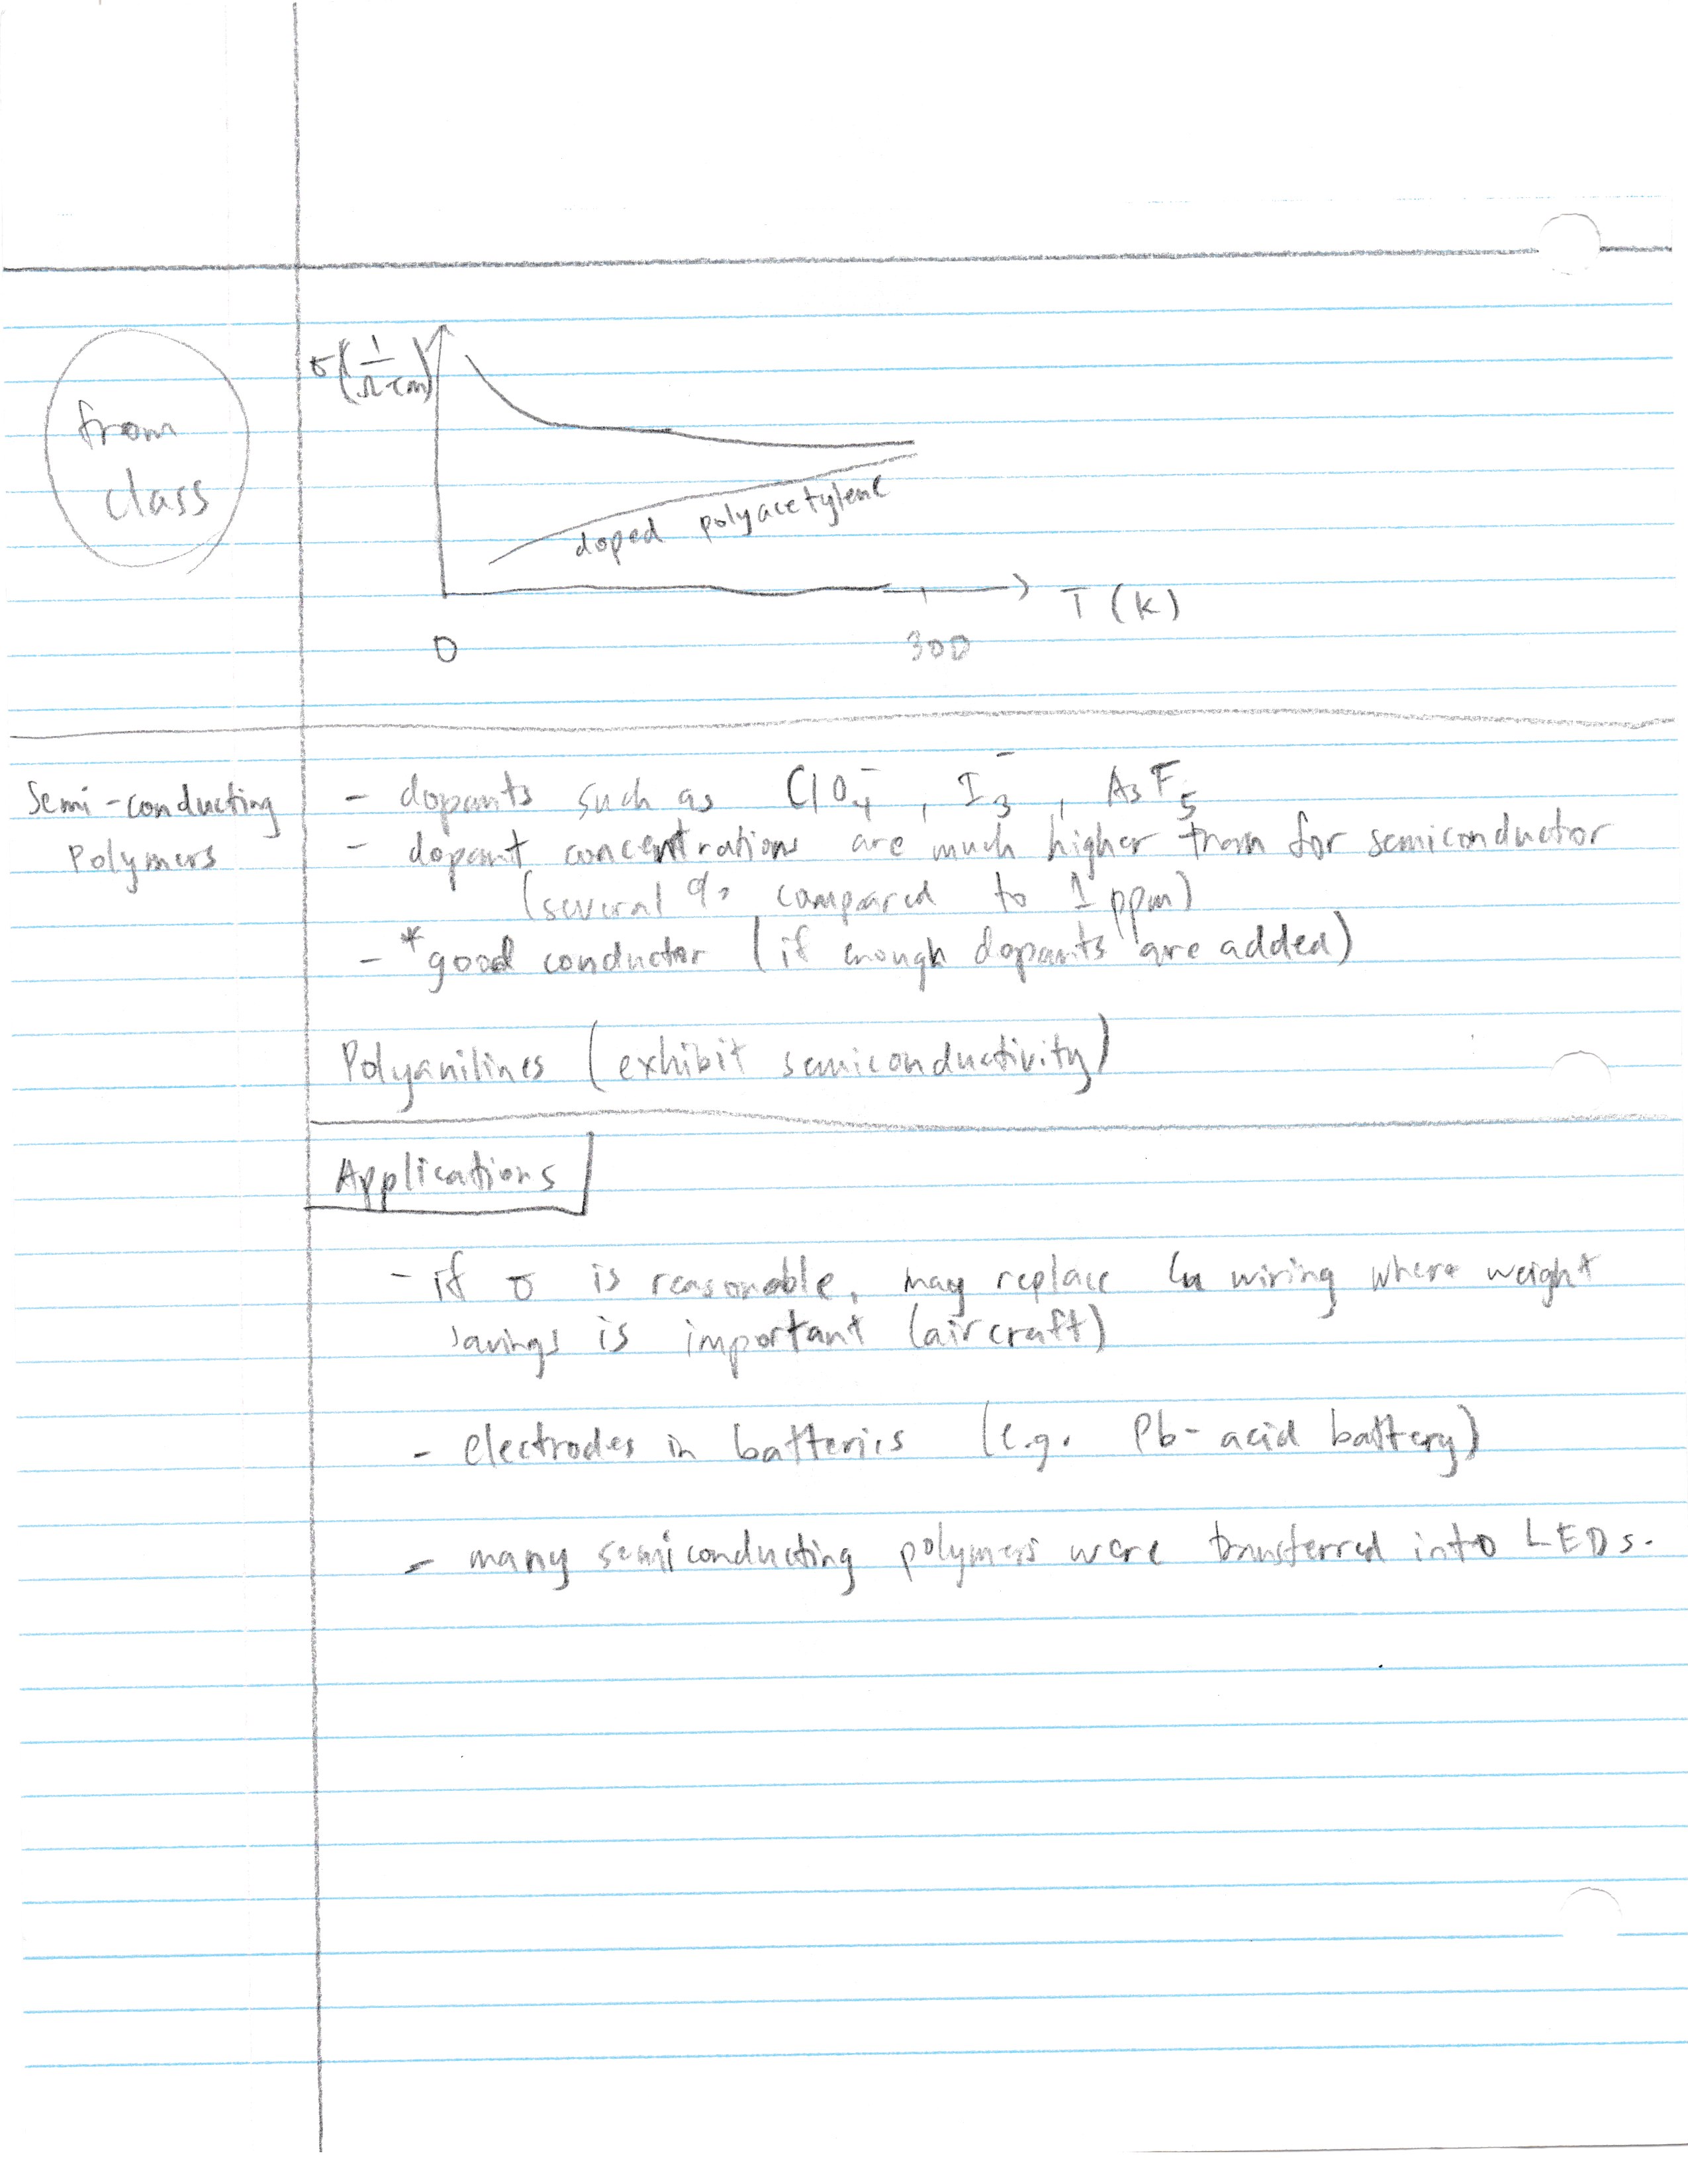 from
class
σ(1/Ω·cm)
doped polyacetylene
T (K)
0
300
Semi-conducting
Polymers
- dopants such as ClO₄⁻, I₃⁻, AsF₅
- dopant concentrations are much higher than for semiconductor
(several % compared to 1 ppm)
- *good conductor (if enough dopants are added)
Polyanilines (exhibit semiconductivity)
Applications
- if σ is reasonable, may replace Cu wiring where weight
savings is important (aircraft)
- electrodes in batteries (e.g. Pb-acid battery)
- many semiconducting polymers were transferred into LEDs.